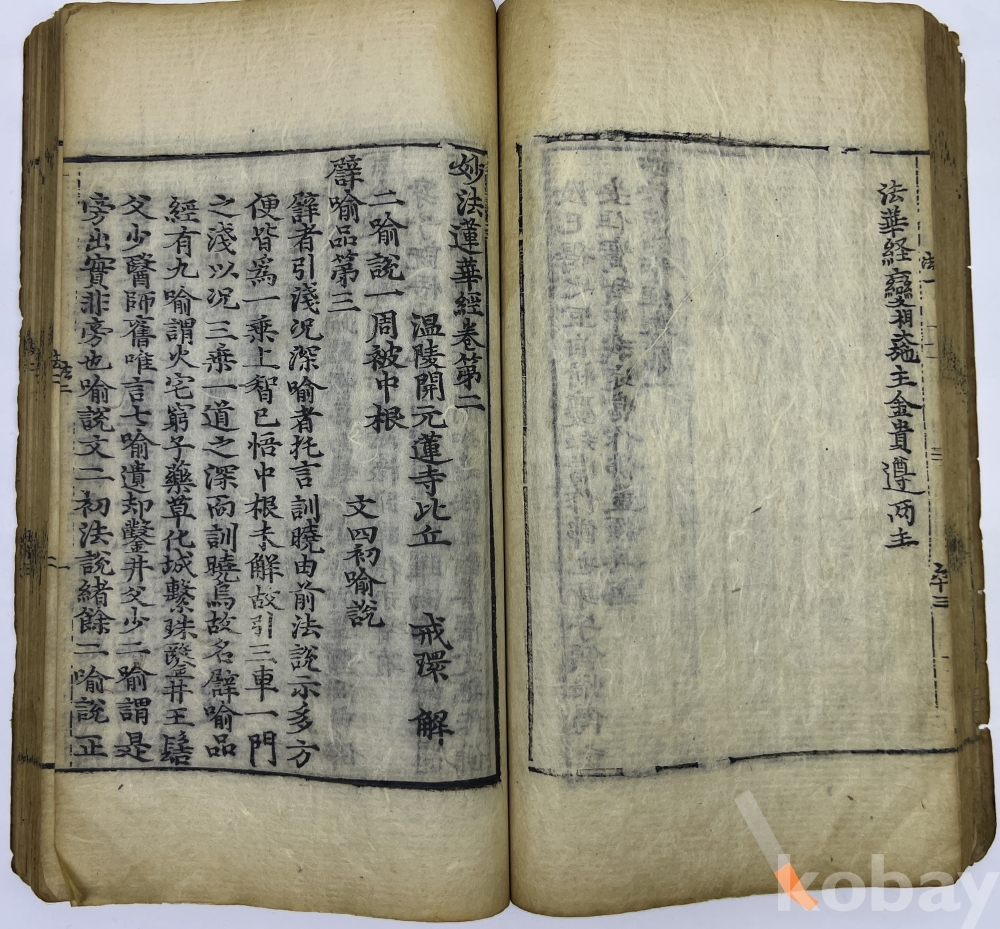 法華経變相施主金貴遵両主
妙法蓮華經卷第二
温陵開元蓮寺比丘 戒環 解
二喻說一周被中根 文四初喻說
譬喻品第三
譬者引淺況深喻者托言訓曉由前法說示多方
便皆爲一乘上智已悟中根未解故引三車一門
之淺以況三乘一道之深而訓曉焉故名譬喻品
經有九喻謂火宅窮子藥草化城繫珠鑿井王髻
父少醫師舊唯言七喻遺却鑿井父少二喻謂是
旁出實非旁也喻說文二初法說緒餘二喻說正
kobay